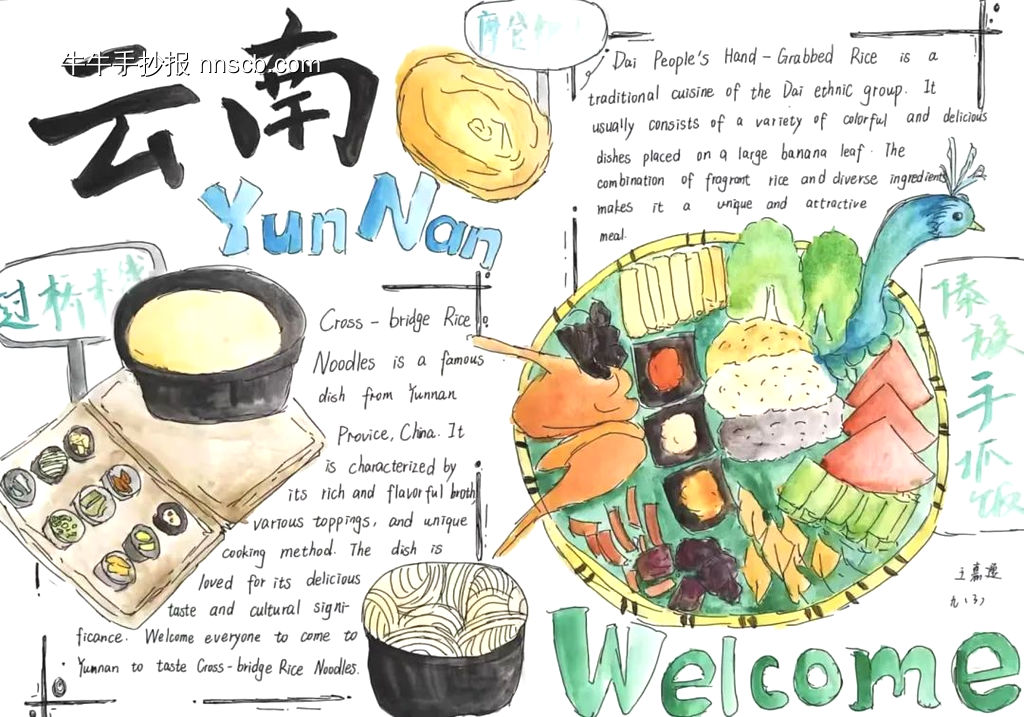 牛牛手抄报 nnscb.com
云南
YunNan
Dai People's Hand-Grabbed Rice is a
traditional cuisine of the Dai ethnic group. It
usually consists of a variety of colorful and delicious
dishes placed on a large banana leaf. The
combination of fragrant rice and diverse ingredients
makes it a unique and attractive
meal.
过桥米线
Cross-bridge Rice
Noodles is a famous
dish from Yunnan
Provice, China. It
is characterized by
its rich and flavorful broth
various toppings, and unique
cooking method. The dish is
loved for its delicious
taste and cultural signi-
ficance. Welcome everyone to come to
Yunnan to taste Cross-bridge Rice Noodles.
傣族手抓饭
九、(3)
Welcome